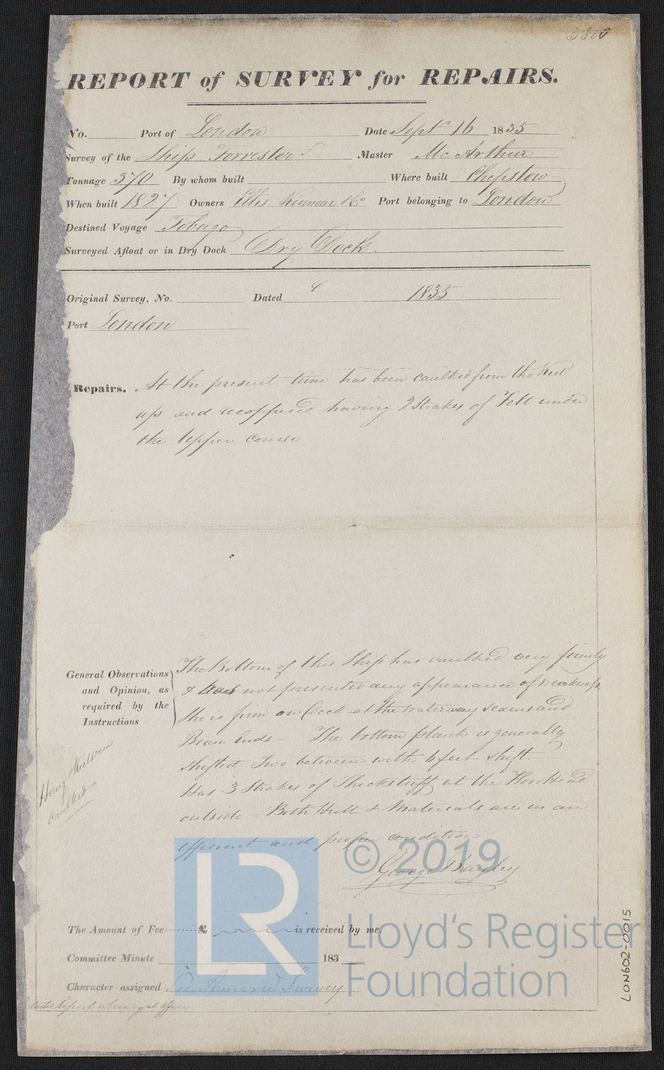 REPORT of SURVEY for REPAIRS.
No. Port of London Date Sept 16 1835
Survey of the Ship Forrester Master Mc Arthur
Tonnage 370 By whom built Where built Chepstow
When built 1827 Owners Ellis Kinnear & Co Port belonging to London
Destined Voyage Tobago
Surveyed Afloat or in Dry Dock Dry Dock
Original Survey, No. Dated 1835
Port London
Repairs. At the present time has been caulked from the Keel
up and recoppered having 2 Strakes of Felt under
the Upper course
General Observations and Opinion, as required by the Instructions
The Bottom of this Ship has caulked very firmly
& has not presented any appearance of weakness
She is firm on Deck at the waterway Seams and
Beam Ends The bottom plank is generally
shifted Two between with 6 feet shift
Has 3 Strakes of Thickstuff at the Floor Head
outside Both Hull & Materials are in an
efficient and proper condition
George Bayley
Henry
The Amount of Fee £ is received by me,
Committee Minute 183
Character assigned Survey
© 2019
LR
Lloyd's Register
Foundation
LON602-0015